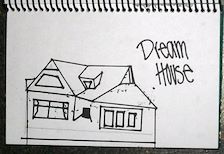 Dream
House